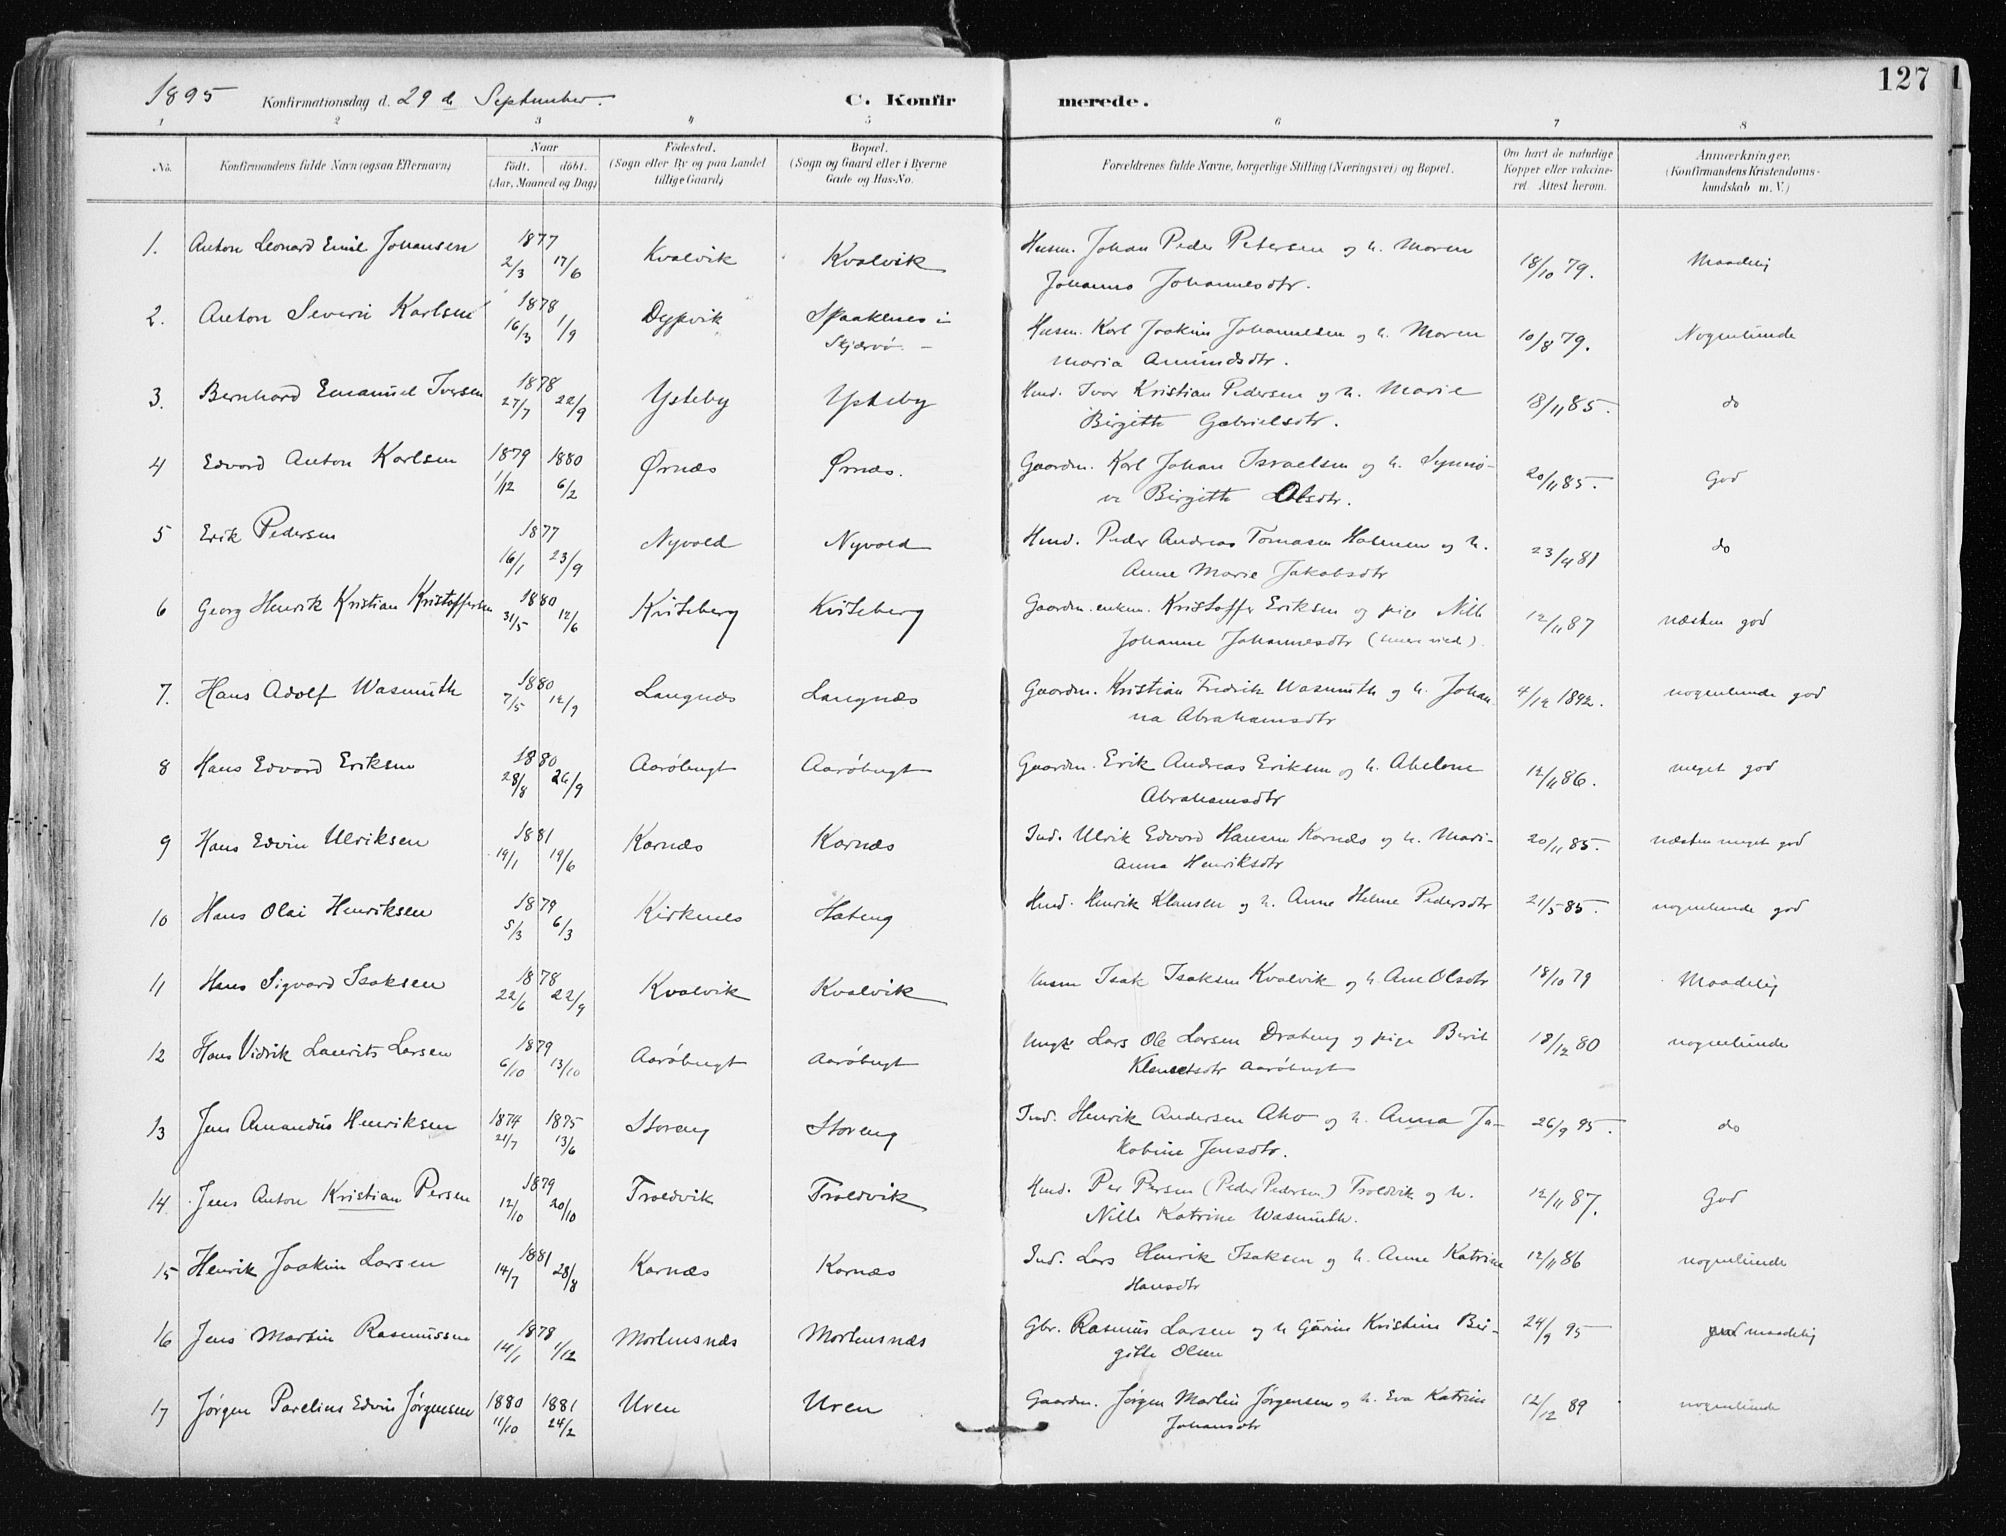 127
1895 Konfirmationsdag d. 29 de September. C. Konfirmerede.
1 2 3 4 5 6 7 8
No. Konfirmandens fulde Navn (ogsaa Efternavn) Naar født. døbt. (Aar, Maaned og Dag) Fødested. (Sogn eller By og paa Landet tillige Gaard) Bopæl. (Sogn og Gaard eller i Byerne Gade og Hus-No. Forældrenes fulde Navne, borgerlige Stilling (Næringsvei) og Bopæl. Om havt de naturlige Kopper eller vaccineret. Attest herom. Anmærkninger. (Konfirmandens Kristendomskundskab m. V.)
1. Anton Leonard Emil Johansen 1877 2/3 17/6 Kvalvik Kvalvik Husm. Johan Peder Petersen og h. Maren
Johanna Johannesdtr. 18/10 79. Maadelig
2. Anton Severin Karlsen 1878 16/3 1/9 Dypvik Spaakenes i
Skjærvø. – Husm. Karl Joakim Johannesen og h. Maren
Maria Amundsdtr. 10/8 79. Nogenlunde
3. Bernhard Emanuel Iversen 1878 27/7 22/9 Ysteby Ysteby Hmd. Ivar Kristian Pedersen og h. Marie
Birgitte Gabrielsdtr. 18/11 85. do
4 Edvard Anton Karlsen 1879 1/12 1880 6/2 Ørnæs Ørnæs. Gaardm. Karl Johan Israelsen og h. Synnø-
ve Birgitte Olsdtr. 20/11 85. God
5 Erik Pedersen 1877 16/1 23/9 Nyvold Nyvold Hmd. Peder Andreas Tomasen Halmen og h.
Anne Marie Jakobsdtr 23/4 81 do
6 Georg Henrik Kristian Kristoffersen 1880 31/5 12/6 Kviteberg Kviteberg Gaardm. enkem. Kristoffer Eriksen og pige Nille
Johanne Johannesdtr 12/11 87 næsten god
7. Hans Adolf Wasmuth 1880 7/5 12/9 Langnæs Langnæs Gaardm. Kristian Fredrik Wasmuth og h. Johan-
na Abrahamsdtr 4/12 1892. nogenlunde god
8 Hans Edvard Eriksen 1880 28/8 26/9 Aarøbugt Aarøbugt Gaardm. Erik Andreas Eriksen og h. Abelone
Abrahamsdtr 12/11 86. meget god
9 Hans Edvin Ulriksen 1881 19/1 19/6 Karnæs Karnæs Ind. Ulrik Edvard Hansen Karnæs og h. Mari-
anna Henriksdtr 20/11 85. næsten meget god
10 Hans Olai Henriksen 1879 5/3 6/3 Kirknes Hateng Hmd. Henrik Klausen og h. Anne Helene Pedersdtr 21/5 85. nogenlunde god
11 Hans Sigvard Isaksen 1878 22/6 22/9 Kvalvik Kvalvik Husm Isak Isaksen Kvalvik og h. Ane Olsdtr 18/10 79 Maadelig
12 Hans Vidrik Laurits Larsen 1879 6/10 13/10 Aarøbugt Aarøbugt Ungk Lars Ole Larsen Drabeng og pige Berit
Klemetsdtr Aarøbugt 18/12 80 nogenlunde
13 Jens Amandus Henriksen 1874 21/7 1875 13/6 Storeng Storeng Ind. Henrik Andersen Aho og h. Anna Ja-
kobine Jensdtr. 26/9 95. do
14 Jens Anton Kristian Persen 1879 12/10 20/10 Troldvik Troldvik Hmd. Per Persen (Peder Pedersen) Troldvik og h.
Nille Katrine Wasmuth. 12/11 87. God
15 Henrik Joakim Larsen 1881 14/7 28/8 Karnæs Karnæs Ind. Lars Henrik Isaksen og h. Anne Katrine
Hansdtr 12/11 86 nogenlunde
16 Jens Martin Rasmussen 1878 14/1 1/12 Mortensnæs Mortensnæs Gbr. Rasmus Larsen og h Gurine Kristine Bir-
gitte Olsen 24/9 95 maadelig
17 Jørgen Parelius Edvin Jørgensen 1880 11/10 1881 24/2 Uren Uren Gaardm. Jørgen Martin Jørgensen og h. Eva Katrine
Johansdtr 12/12 89 nogenlunde